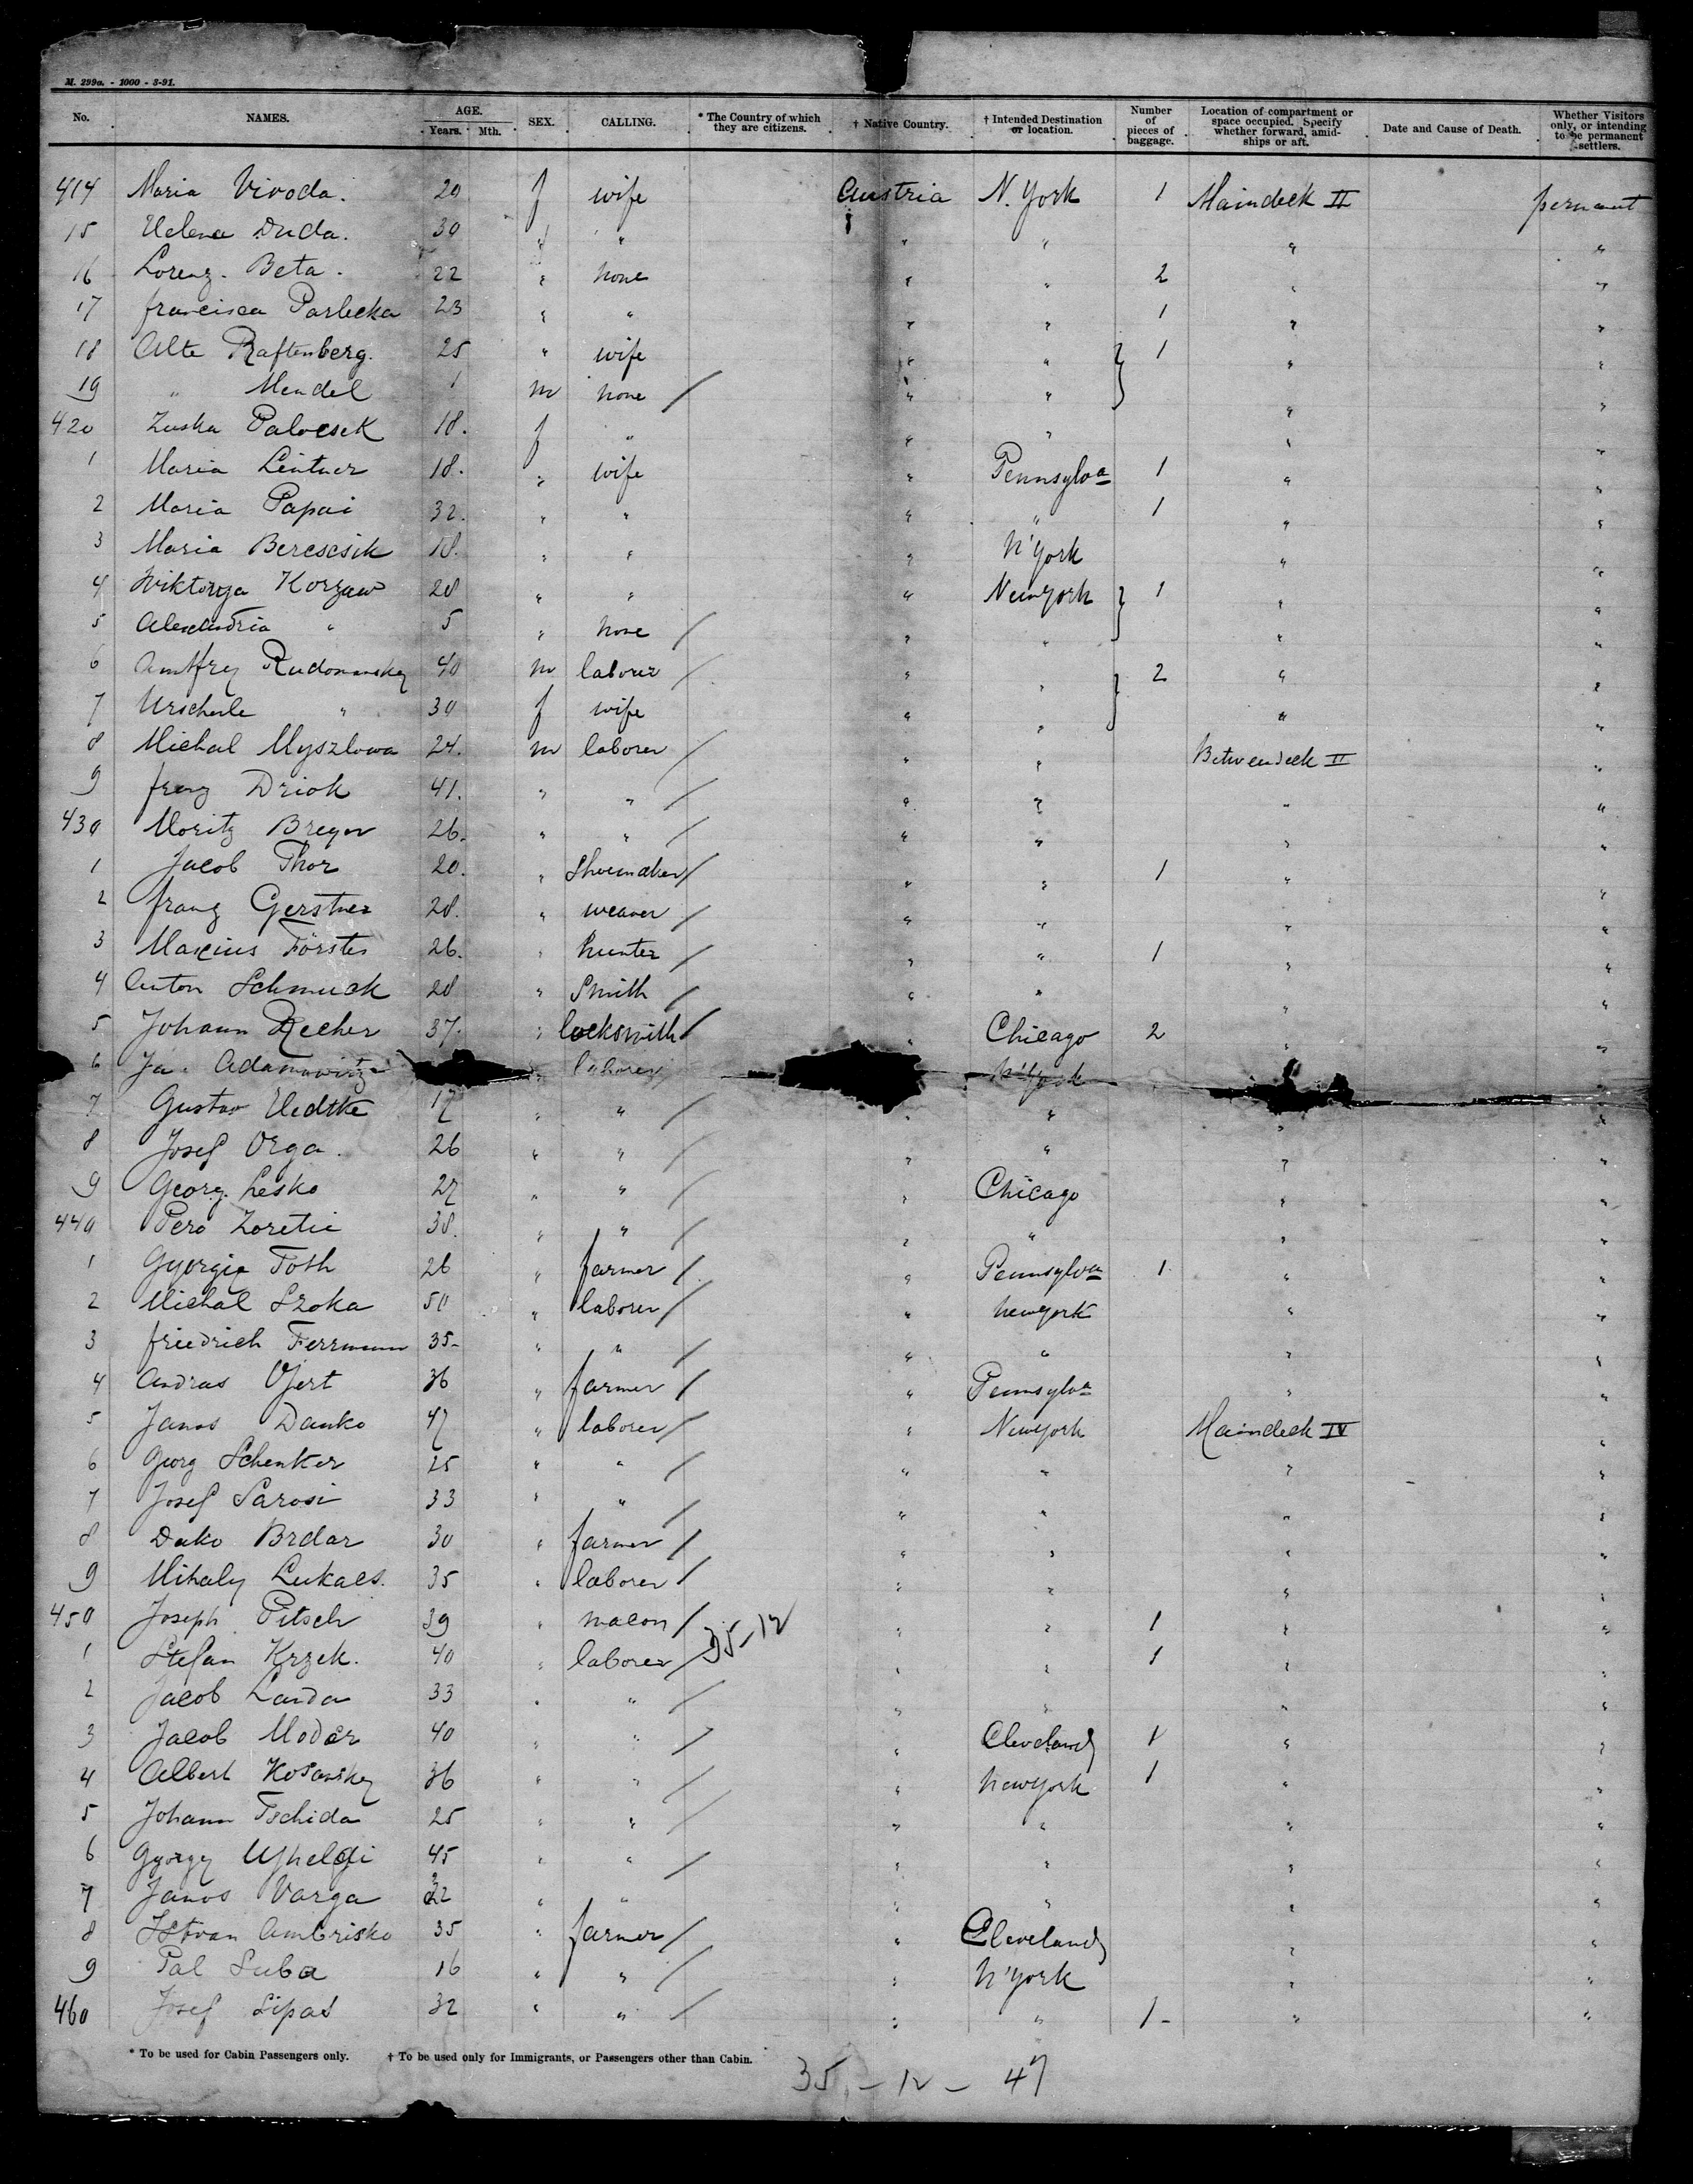 M. 299a. - 1000 - 3-91.
No. NAMES. AGE. Years. Mth. SEX. CALLING. * The Country of which they are citizens. † Native Country. † Intended Destination or location. Number of pieces of baggage. Location of compartment or space occupied. Specify whether forward, amidships or aft. Date and Cause of Death. Whether Visitors only, or intending to be permanent settlers.
414 Maria Vivoda. 20 f wife Austria N. York 1 Maindeck II
15 Helena Duda. 30 " " " " " "
16 Lorenz. Beta. 22 " none " " 2 " "
17 francisca Parlecka 23 " " " " 1 " "
18 Alte Raftenberg. 25 " wife " " } 1 " "
19 " Mendel 1 m none / " " " "
420 Zuska Palocsek 18. f " " " " "
1 Maria Leitner 18. " wife " Pennsylva 1 " "
2 Maria Papai 32. " " " " 1 " "
3 Maria Berescsik 18. " " " N'York " "
4 Wiktorya Korzaw 28 " " " NewYork } 1 " "
5 Alexandria " 5 " none / " " " "
6 Rudomansky 40 m laborer / " " } 2 " "
7 " 30 f wife " " " "
8 Michal Myszlowa 24. m laborer / " " Betweendeck II "
9 Driok 41. " " / " " " "
430 Moritz Bregor 26. " " / " " " "
1 Jacob Thor 20. " Shoemaker / " " 1 " "
2 franz Gerstner 28. " weaver / " " " "
3 Förster 26. " hunter / " " 1 " "
4 Anton Schmuck 28 " Smith / " " " "
5 Johann Recher 37. " locksmith / " Chicago 2 " "
6 Adamowitz " laborer / N'York
7 Gustav 17 " " / " " " "
8 Josef Orga. 26 " " / " " " "
9 Georg. Lesko 27 " " / " Chicago " "
440 Pero Zoretic 38. " " / " " " "
1 Toth 26 " farmer / " Pennsylva 1 " "
2 Michal Szoka 50 " laborer / " NewYork " "
3 friedrich Ferrmann 35- " " / " " " "
4 Andras 36 " farmer / " Pennsylva " "
5 Janos Danko 47 " laborer / " NewYork Maindeck IV "
6 Georg Schenker 25 " " / " " " "
7 Josef Sarosi 33 " " / " " " "
8 Dako Brdar 30 " farmer / " " " "
9 Mihaly Lukacs. 35 " laborer / " " " "
450 Joseph Pitsch 39 " macon / 35-12 " " 1 " "
1 Stefan Krzek. 40 " laborer / " " 1 " "
2 Jacob Landa 33 " " / " " " "
3 Jacob Modar 40 " " / " Cleveland 1 " "
4 Albert Kosansky 36 " " / " NewYork 1 " "
5 Johann Tschida 25 " " / " " " "
6 György Ujhelyi 45 " " / " " " "
7 Janos Varga " " " " " "
8 Istvan Ambrisko 35 " farmer / " Cleveland " "
9 Pal Suba 16 " " / " N'York " "
460 Josef Sipas 32 " " / " " 1- " "
* To be used for Cabin Passengers only. † To be used only for Immigrants, or Passengers other than Cabin.
35 - 12 - 47